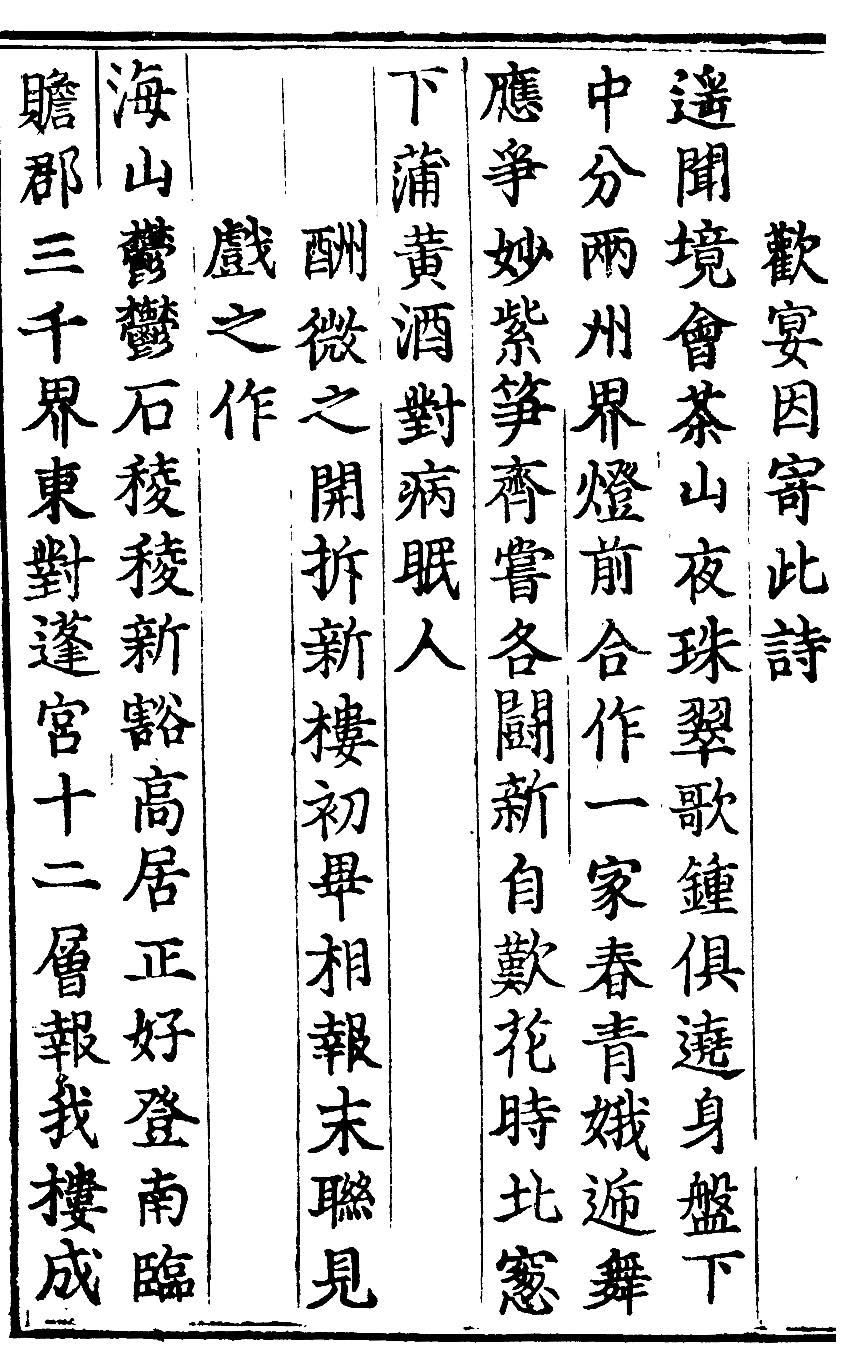 歡宴因寄此詩
遥聞境會茶山夜珠翠歌鍾俱遶身盤下
中分兩州界燈前合作一家春青娥遞舞
應爭妙紫笋齊嘗各鬪新自歎花時北窓
下蒲黄酒對病眠人
酬微之開拆新樓初畢相報末聯見
戲之作
海山鬱鬱石稜稜新豁高居正好登南臨
贍郡三千界東對蓬宮十二層報我樓成